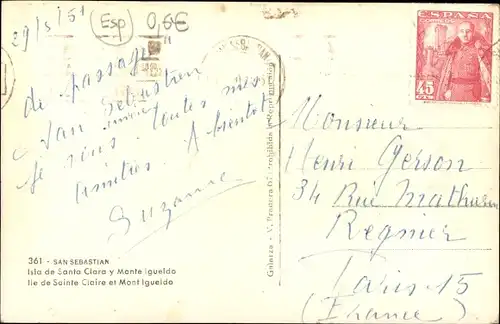 29/3/51
Esp
0,6€
de passage
San Sebastien
je vous toutes mes
amitiés. A bientot
Suzanne
361 - SAN SEBASTIAN
Isla de Santa Clara y Monte Igueldo
Ile de Sainte Claire et Mont Igueldo
ESPAÑA
45
Monsieur
Henri Gerson
34 Rue Mathurin
Regnier
Paris-15
(France)